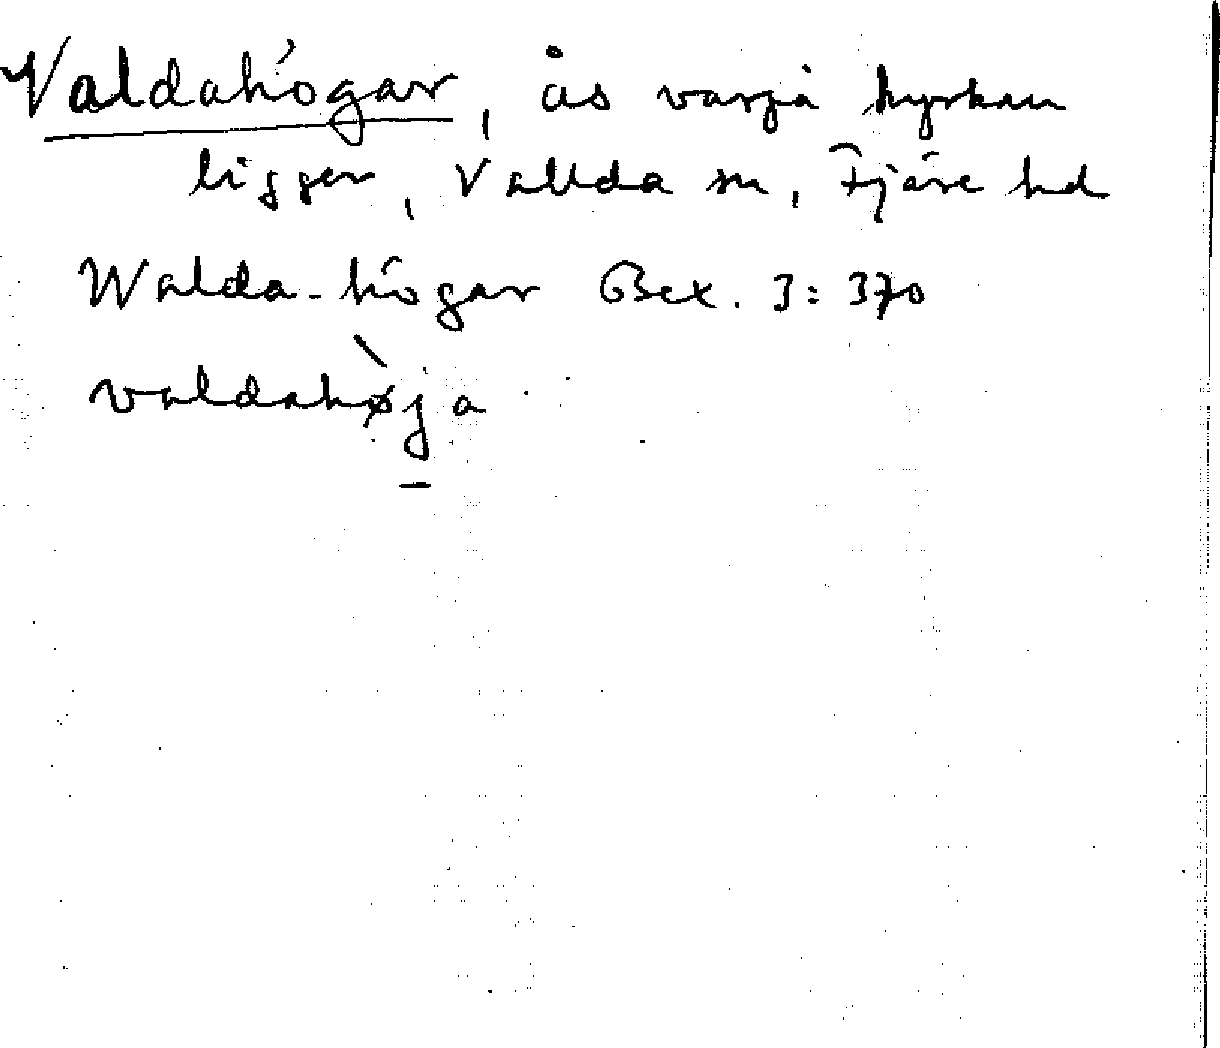 Valdahögar, ås varpå kyrkan
ligger, Vallda sn, Fjäre hd
Walda-högar Bex. 3:370
valdahø̀ja